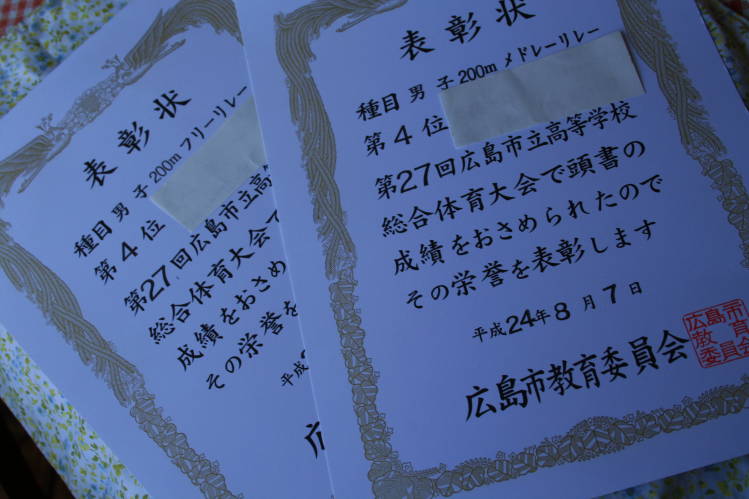 表彰状
種目 男子 200m フリーリレー
第4位
第27回広島市立高
総合体育大会で
成績をおさめ
その栄誉を
平成
広
表彰状
種目 男子 200m メドレーリレー
第4位
第27回広島市立高等学校
総合体育大会で頭書の
成績をおさめられたので
その栄誉を表彰します
平成24年8月7日
広島市教育委員会
広島市
教育
委員会